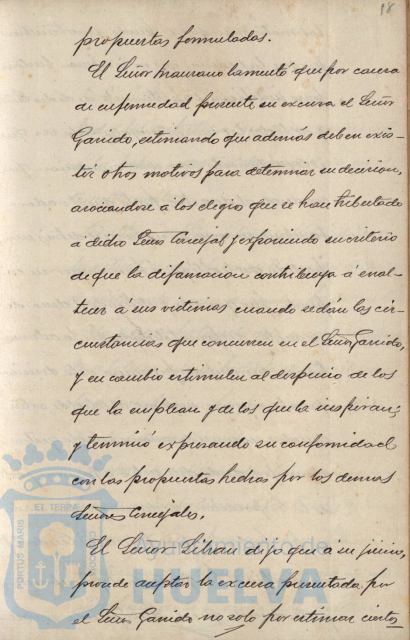 18
propuestas formuladas.
El Señor Mauzano lamentó que por causa
de enfermedad presente su excusa el Señor
Garrido, estimando que además deben exis-
tir otros motivos para determinar su decision,
asociandose á los elogios que se han tributado
á dicho Señor Concejal y exponiendo su criterio
de que la difamacion contribuya á enal-
tecer á sus victimas cuando se dán las cir-
cunstancias que concurren en el Señor Garrido,
y en cambio estimulen al desprecio de los
que la emplean y de los que la inspiran;
y terminó expresando su conformidad
con las propuestas hechas por los demas
Señores Concejales.
El Señor dijo que á su juicio,
procede aceptar la excusa presentada por
el Señor Garrido no solo por estimar ciertos
PORTUS MARIS
EL TERR
Ayuntamiento de
HUELVA